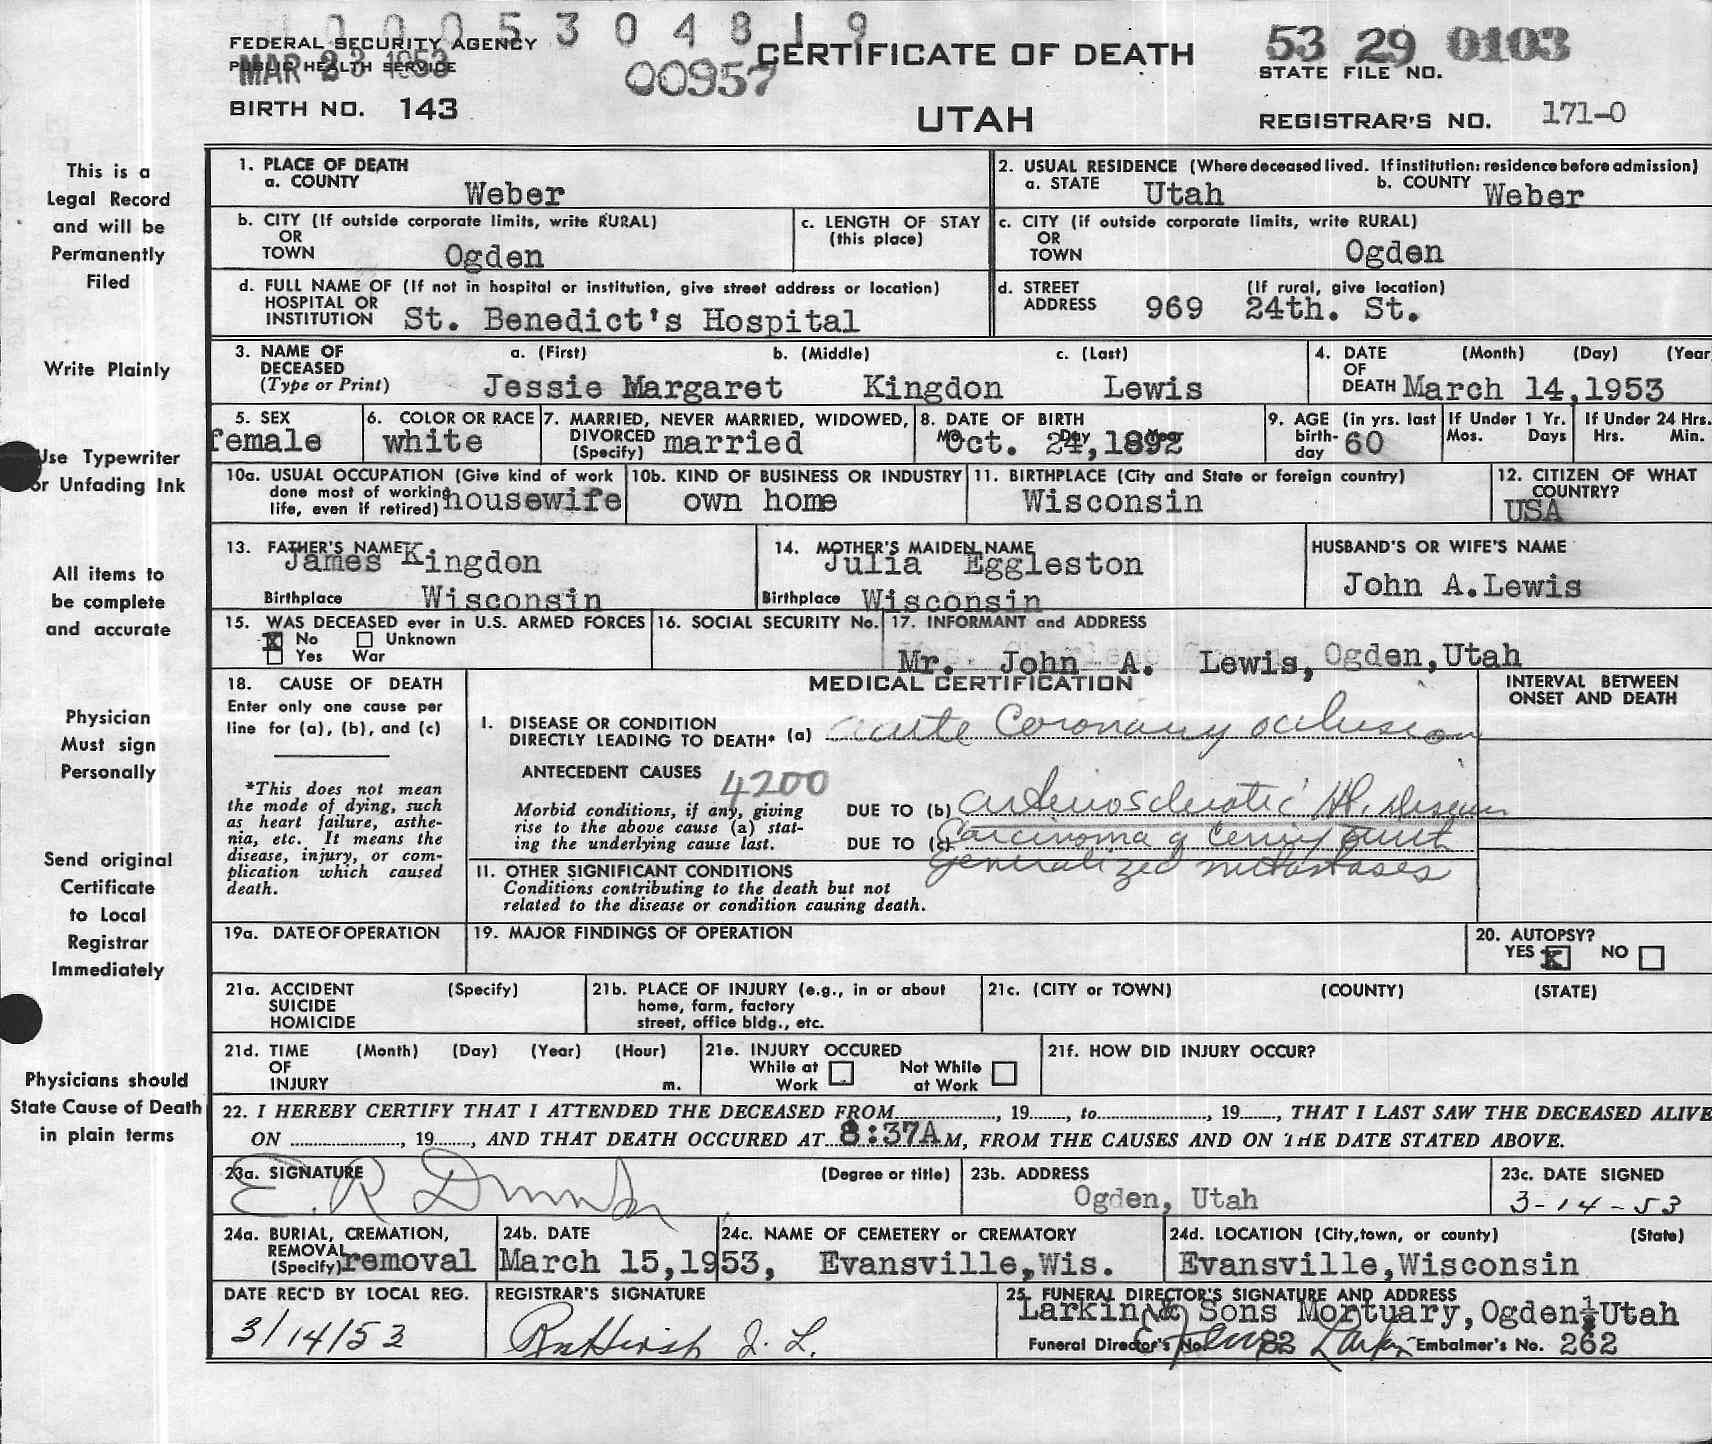 1 0 0 0 5 3 0 4 8 1 9
FEDERAL SECURITY AGENCY
PUBLIC HEALTH SERVICE
MAR 23 1953
00957
CERTIFICATE OF DEATH
53 29 0103
STATE FILE NO.
BIRTH NO. 143
UTAH
REGISTRAR'S NO. 171-0
This is a
Legal Record
and will be
Permanently
Filed
Write Plainly
Use Typewriter
or Unfading Ink
All items to
be complete
and accurate
Physician
Must sign
Personally
Send original
Certificate
to Local
Registrar
Immediately
Physicians should
State Cause of Death
in plain terms
1. PLACE OF DEATH
a. COUNTY Weber
2. USUAL RESIDENCE (Where deceased lived. If institution: residence before admission)
a. STATE Utah b. COUNTY Weber
b. CITY (If outside corporate limits, write RURAL)
OR
TOWN Ogden
c. LENGTH OF STAY
(this place)
c. CITY (if outside corporate limits, write RURAL)
OR
TOWN Ogden
d. FULL NAME OF (If not in hospital or institution, give street address or location)
HOSPITAL OR
INSTITUTION St. Benedict's Hospital
d. STREET (If rural, give location)
ADDRESS 969 24th. St.
3. NAME OF a. (First) b. (Middle) c. (Last)
DECEASED
(Type or Print) Jessie Margaret Kingdon Lewis
4. DATE (Month) (Day) (Year
OF
DEATH March 14,1953
5. SEX
female
6. COLOR OR RACE
white
7. MARRIED, NEVER MARRIED, WIDOWED,
DIVORCED
(Specify) married
8. DATE OF BIRTH
Oct. 24,1892
9. AGE (in yrs. last
birth-
day 60
If Under 1 Yr.
Mos. Days
If Under 24 Hrs.
Hrs. Min.
10a. USUAL OCCUPATION (Give kind of work
done most of working
life, even if retired) housewife
10b. KIND OF BUSINESS OR INDUSTRY
own home
11. BIRTHPLACE (City and State or foreign country)
Wisconsin
12. CITIZEN OF WHAT
COUNTRY?
USA
13. FATHER'S NAME
James Kingdon
Birthplace Wisconsin
14. MOTHER'S MAIDEN NAME
Julia Eggleston
Birthplace Wisconsin
HUSBAND'S OR WIFE'S NAME
John A.Lewis
15. WAS DECEASED ever in U.S. ARMED FORCES
X No Unknown
Yes War
16. SOCIAL SECURITY No.
17. INFORMANT and ADDRESS
Mr. John A. Lewis, Ogden,Utah
18. CAUSE OF DEATH
Enter only one cause per
line for (a), (b), and (c)
*This does not mean
the mode of dying, such
as heart failure, asthe-
nia, etc. It means the
disease, injury, or com-
plication which caused
death.
MEDICAL CERTIFICATION
INTERVAL BETWEEN
ONSET AND DEATH
I. DISEASE OR CONDITION
DIRECTLY LEADING TO DEATH* (a) acute Coronary occlusion
ANTECEDENT CAUSES 4200
Morbid conditions, if any, giving
rise to the above cause (a) stat-
ing the underlying cause last.
DUE TO (b) arteriosclerotic Ht. Disease
DUE TO (c) Carcinoma of Cervix with
generalized metastases
11. OTHER SIGNIFICANT CONDITIONS
Conditions contributing to the death but not
related to the disease or condition causing death.
19a. DATE OF OPERATION
19. MAJOR FINDINGS OF OPERATION
20. AUTOPSY?
YES X NO
21a. ACCIDENT (Specify)
SUICIDE
HOMICIDE
21b. PLACE OF INJURY (e.g., in or about
home, farm, factory
street, office bldg., etc.
21c. (CITY or TOWN) (COUNTY) (STATE)
21d. TIME (Month) (Day) (Year) (Hour)
OF
INJURY m.
21e. INJURY OCCURED
While at Not While
Work at Work
21f. HOW DID INJURY OCCUR?
22. I HEREBY CERTIFY THAT I ATTENDED THE DECEASED FROM , 19 , to , 19 , THAT I LAST SAW THE DECEASED ALIVE
ON , 19 , AND THAT DEATH OCCURED AT 8:37A M, FROM THE CAUSES AND ON THE DATE STATED ABOVE.
23a. SIGNATURE (Degree or title)
E. R
23b. ADDRESS
Ogden, Utah
23c. DATE SIGNED
3-14-53
24a. BURIAL, CREMATION,
REMOVAL
(Specify) removal
24b. DATE
March 15,1953,
24c. NAME OF CEMETERY or CREMATORY
Evansville,Wis.
24d. LOCATION (City,town, or county) (State)
Evansville,Wisconsin
DATE REC'D BY LOCAL REG.
3/14/53
REGISTRAR'S SIGNATURE
25. FUNERAL DIRECTOR'S SIGNATURE AND ADDRESS
Larkin & Sons Mortuary, Ogden, Utah
Funeral Director's No. 82 Larkin Embalmer's No. 262